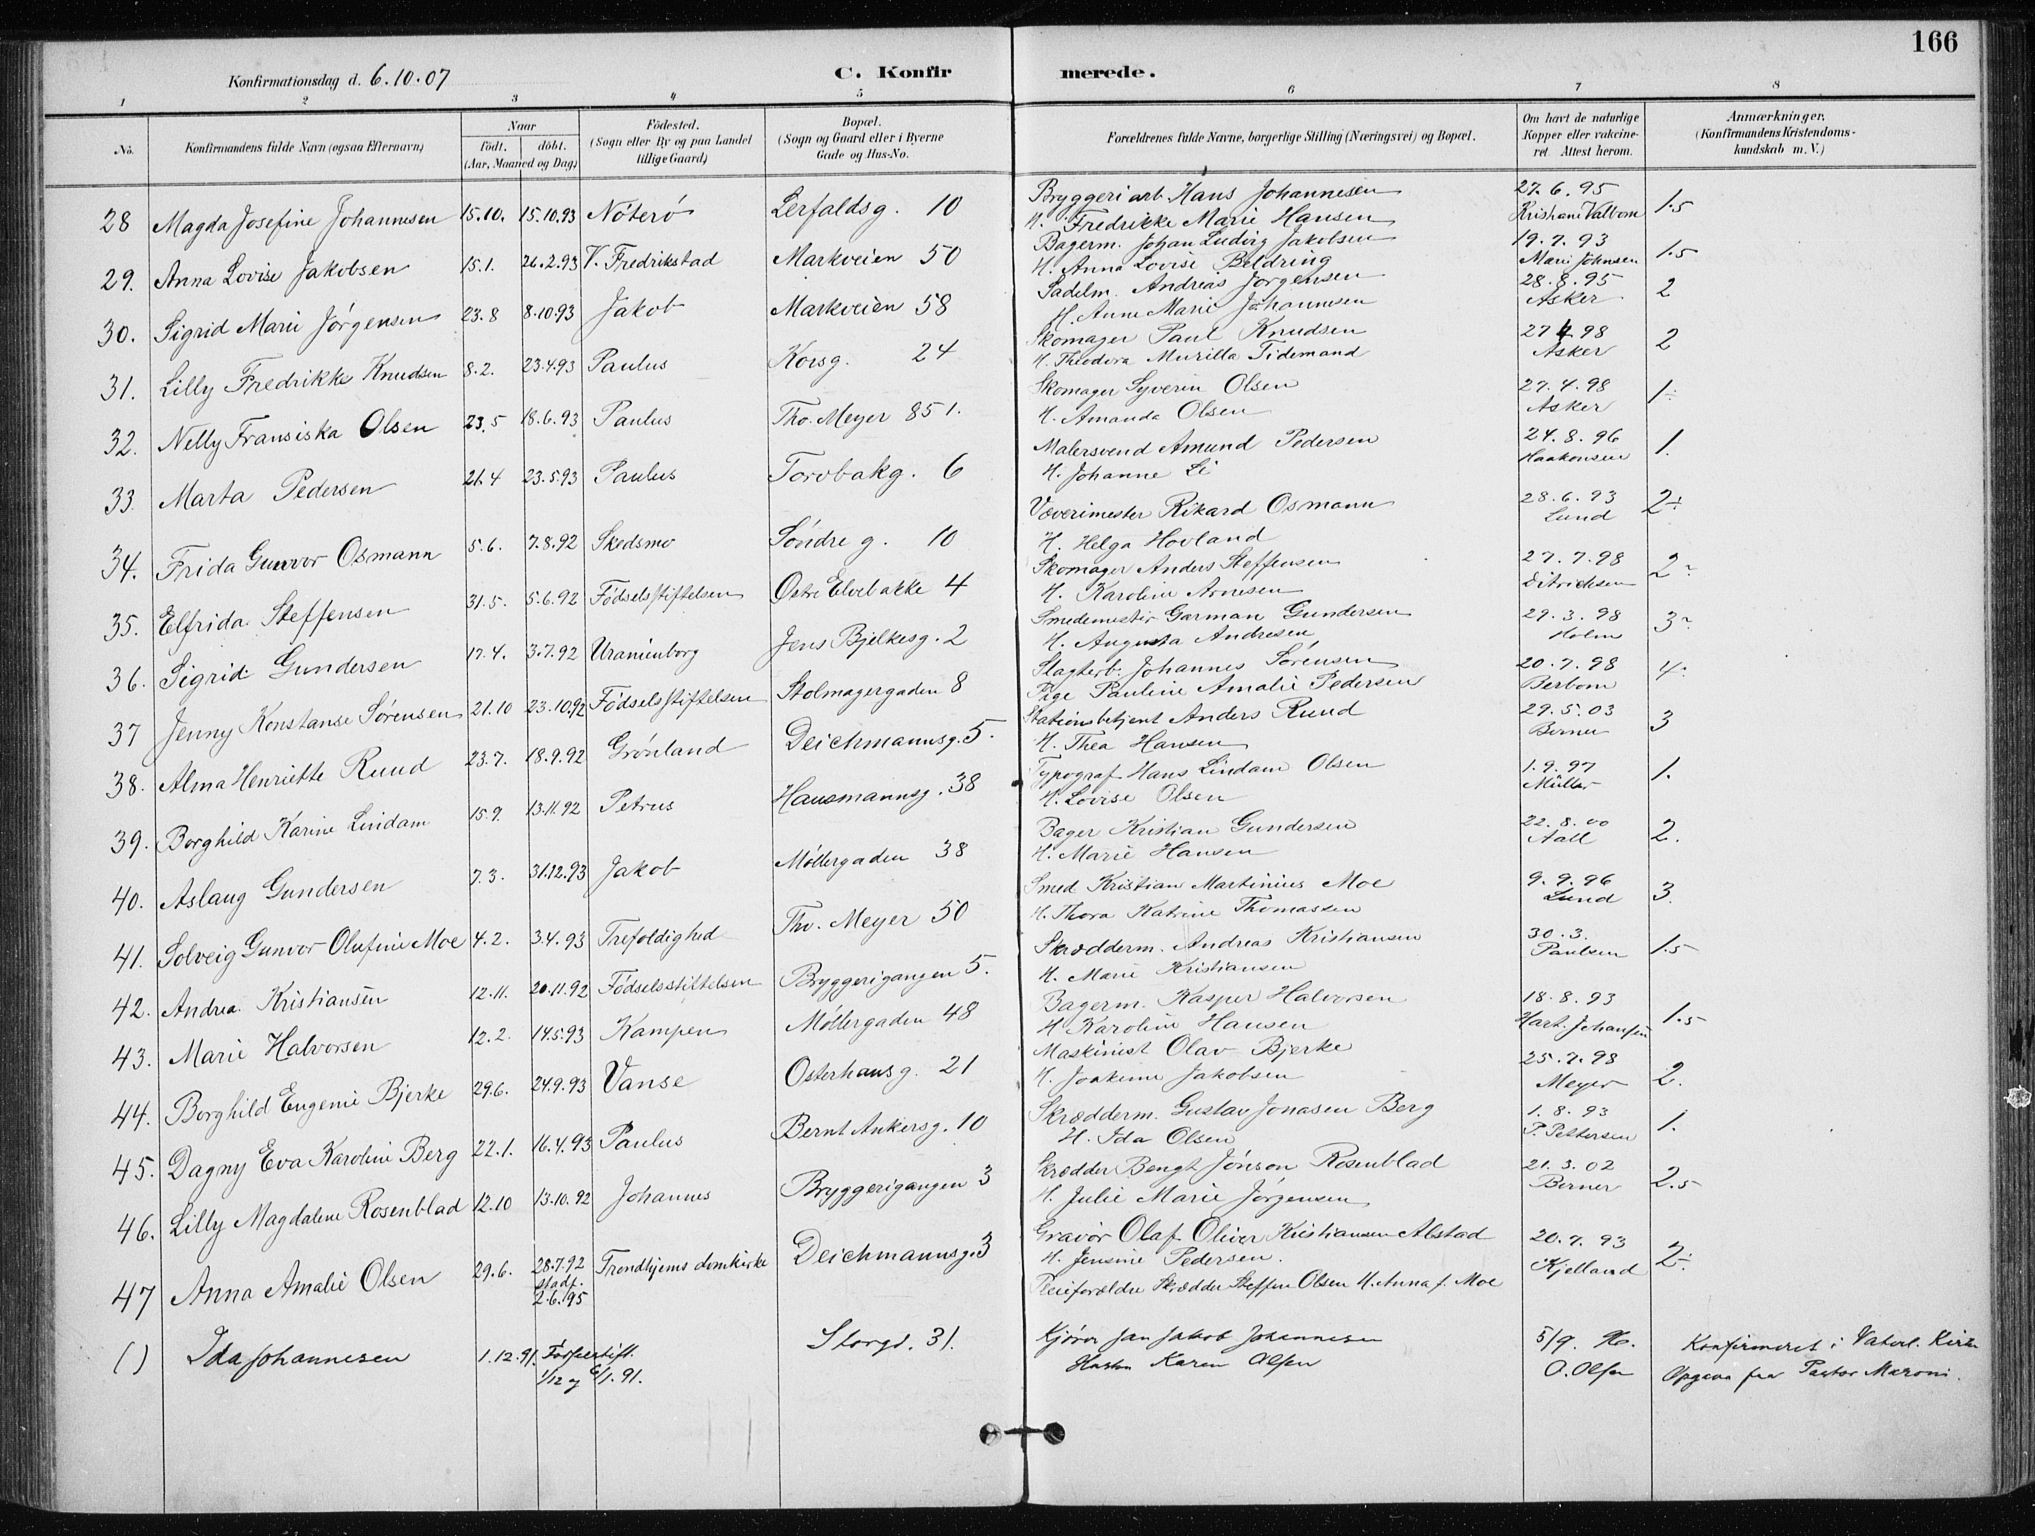 166
Konfirmationsdag d. 6.10.07
C. Konfirmerede.
1 2 3 4 5 6 7 8
No.
Konfirmandens fulde Navn (ogsaa Efternavn)
Naar
Født. døbt.
(Aar, Maaned og Dag)
Fødested.
(Sogn eller By og paa Landet
tillige Gaard)
Bopæl.
(Sogn og Gaard eller i Byerne
Gade og Hus-No.
Forældrenes fulde Navne, borgerlige Stilling (Næringsvei) og Bopæl.
Om havt de naturlige
Kopper eller vakcine-
ret. Attest herom.
Anmærkninger.
(Konfirmandens Kristendoms-
kundskab m. V.)
28 Magda Josefine Johannesen 15.10. 15.10.93 Nöterö Lerfaldsg. 10 Bryggeriarb. Hans Johannesen 27.6.95 1.5
H. Fredrikke Marie Hansen Kristiane Valbom
29. Anna Lovise Jakobsen 15.1. 26.2.93 V. Fredrikstad Markveien 50 Bagerm. Johan Ludvig Jakobsen 19.7.93 1.5
H. Anna Lovise Beldring Marie Johnsen
30. Sigrid Marie Jörgensen 23.8 8.10.93 Jakob Markveien 58 Sadelm. Andreas Jörgensen 28.8.95 2
H. Anne Marie Johannesen Asker
31. Lilly Fredrikke Knudsen 8.2. 23.4.93 Paulus Korsg. 24 Skomager Paul Knudsen 27 4 98 2
H. Theodora Murilla Tidemand Asker
32. Nelly Fransiska Olsen 23.5 18.6.93 Paulus Tho. Meyer 851. Skomager Syverin Olsen 27.4.98 1÷
H. Amanda Olsen Asker
33 Marta Pedersen 21.4 23.5.93 Paulus Torvbakg. 6 Malersvend Amund Pedersen 24.8.96 1.
H. Johanne Li Haakonsen
34. Frida Gunvor Osmann 5.6. 7.8.92 Skedsmo Söndre g. 10 Væverimester Rikard Osmann 28.6.93 2÷
H. Helga Hovland Lund
35. Elfrida Steffensen 31.5. 5.6.92 Födselsstiftelsen Östre Elvebakke 4 Skomager Anders Steffensen 27.7.98 2
H. Karoline Arnesen Ditrichsen
36. Sigrid Gundersen 17.4. 3.7.92 Uranienborg Jens Bjelkesg. 2 Smedemester Garman Gundersen 29.3.98 3
H. Augusta Andresen Holm
37 Jenny Konstanse Sörensen 21.10 23.10.92 Födselsstiftelsen Stolmagergaden 8 Slagterb. Johannes Sörensen 20.7.98 4.
Pige Pauline Amalie Pedersen Berbom
38. Alma Henriette Ruud 23.7. 18.9.92 Grönland Deichmannsg. 5. Stationsbetjent Anders Ruud 29.5.03 3
H. Thea Hansen Berner
39. Borghild Karine Lindam 15.9. 13.11.92 Petrus Hausmannsg. 38 Typograf Hans Lindam Olsen 1.9.97 1.
H. Lovise Olsen Müller
40. Aslaug Gundersen 7.3. 31.12.93 Jakob Möllergaden 38 Bager Kristian Gundersen 22.8.00 2.
H. Marie Hansen Aall
41. Solveig Gunvor Olufine Moe 4.2. 3.4.93 Trefoldighed Thv. Meyer 50 Smed Kristian Martinius Moe 9.9.96 3.
H. Thora Katrine Thomassen Lund
42. Andrea Kristiansen 12.11. 20.11.92 Födselsstiftelsen Bryggerigangen 5. Skrædderm. Andreas Kristiansen 30.3. 1.5
H. Marie Kristiansen Paulsen
43. Marie Halvorsen 12.2. 14.5.93 Kampen Möllergaden 48 Bagerm. Kasper Halvorsen 18.8.93 1.5
H. Karoline Hansen Hart. Johansen
44. Borghild Eugenie Bjerke 29.6. 24.9.93 Vanse Osterhausg. 21 Maskinist Olav Bjerke 25.7.98 2.
H. Joakime Jakobsen Meyer
45. Dagny Eva Karoline Berg 22.1. 16.4.93 Paulus Bernt Ankersg. 10 Skrædderm. Gustav Jonasen Berg 1.8.93 1.
H. Ida Olsen P. Pettersen
46. Lilly Magdalene Rosenblad 12.10 13.10.92 Johannes Bryggerigangen 3 Skrædder Bengt Jönson Rosenblad 21.3.02 2.5
H. Julie Marie Jörgensen Berner
47 Anna Amalie Olsen 29.6. 28.7.92 Trondhjems domkirke Deichmannsg. 3 Gravör Olaf Oliver Kristiansen Alstad 20.7.93 2÷
stadf. H. Jensine Pedersen. Kjelland
2.6.95 Pleieforældre Skrædder Steffen Olsen H. Anna f. Moe
( ) Ida Johannesen 1.12.91. Storgd. 31. Jan Jakob Johannesen 5/9 96. Konfirmeret i Vaterl. Kirke
Hustru Karen Olsen O. Olsen Opgave fra Pastor Maroni.
1/12 6/1.91.